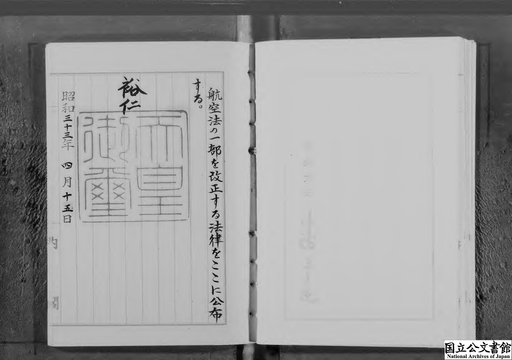 航空法の一部を改正する法律をここに公布
する。
裕仁
天皇
御璽
昭和三十三年四月十五日
内閣
国立公文書館
National Archives of Japan